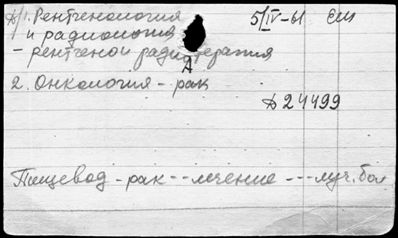 1. Рентгенология 5/IV-61
и радиология
- рентгено и радиотерапия
А
2. Онкология - рак
Д 24499
Пищевод - рак -- лечение --- луч. бол